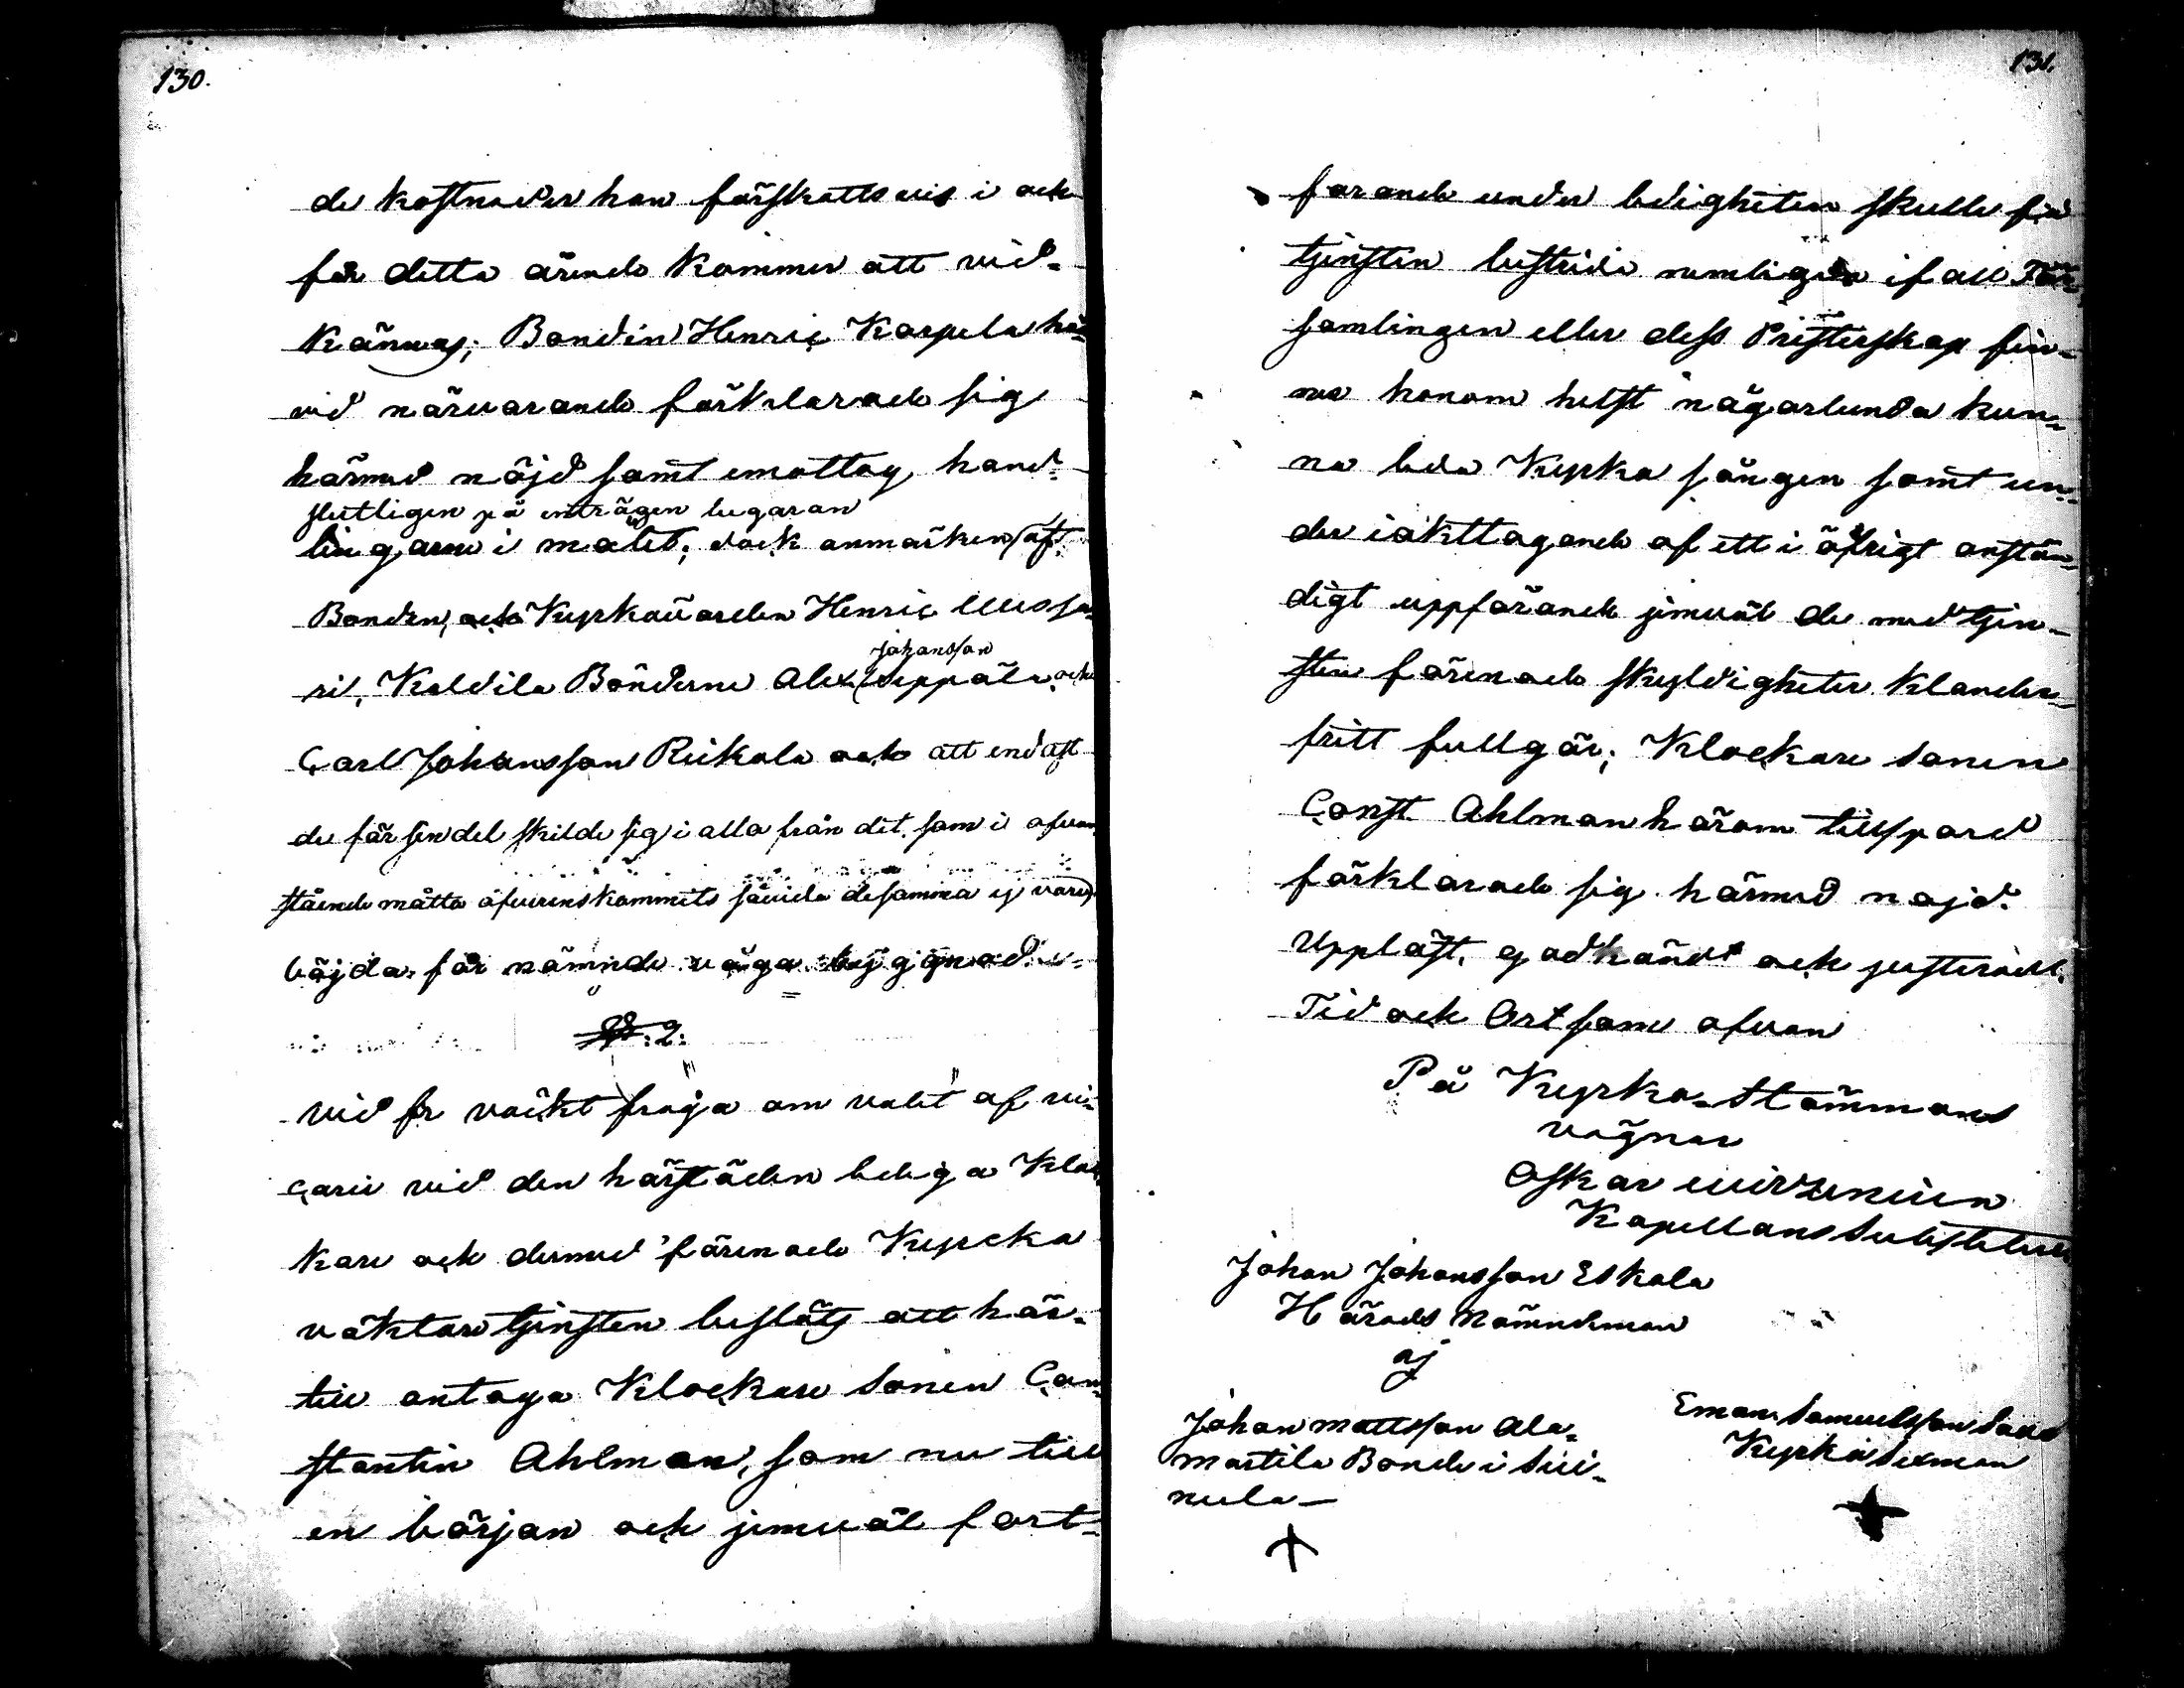 130.
de kostnader han förskottsvis i och
för detta ärende kommer att vid-
kännas; Bonden Henric Karpela här-
vid närvarande förklarade sig
härmed nöjd samt emottog hand-
slutligen på enträgen begäran
lingarne i målet; dock anmärken af
Bonden, och Kyrkovärden Henric
Kaldila Bönderne Alex Johansson Seppälä och
Carl Johansson Rickala och att endast
de för sin del skilde sig i alla från det, som i ofvan
stående måtto öfverenskommits såvida desamma ej vore
böjda för nämnde våga byggnad.
§: 2:
Vid för väckt fråga om valet af vi-
carie vid den härstädes lediga Kloc-
kare och dermed förenade Kyrcko
väktare tjensten beslöts att här-
till antaga Klockare sonen Con-
stantin Ahlman, som nu till
en början och jemväl fort-
131.
farande under ledigheten skulle få
tjensten bestrida nemligen ifall För-
samlingen eller dess Presterskap fin-
na honom helst någorlunda kun-
na leda Kyrko sången samt un-
der iakttagande af ett i öfrigt anstän-
digt uppförande jemväl de med tjen-
sten förenade skyldigheter klander-
fritt fullgör; Klockare sonen
Const. Ahlman härom tillspord
förklarade sig härmed nöjd.
Uppläst, godkändt och justeradt.
Tid och Ort som ofvan
På Kyrko-Stämmans
vägnar
Oskar
Kapellans Substitut
Johan Johansson Eskola
Härads Nämndeman
Johan Mattsson Ala-
martila Bonde i Sii-
nula
Eman Samuelsson
Kyrko Sexman